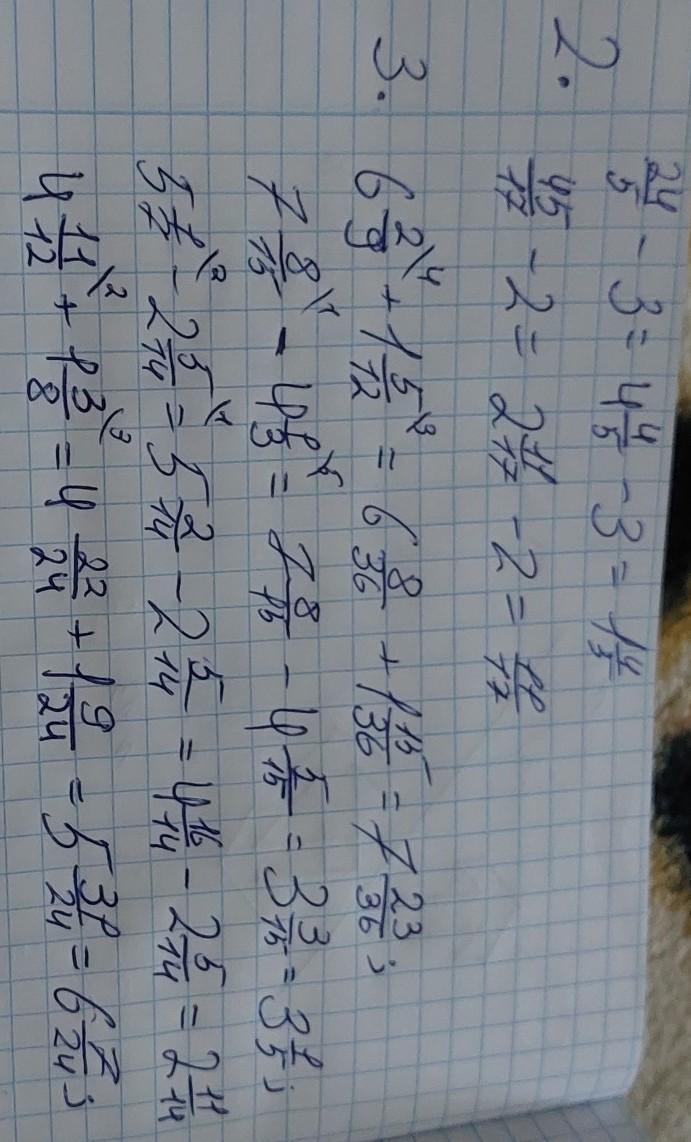 2. 24/5 - 3 = 4 4/5 - 3 = 1 4/5
45/17 - 2 = 2 11/17 - 2 = 11/17
3. 6 2/9 \4 + 1 5/12 \3 = 6 8/36 + 1 15/36 = 7 23/36;
7 8/15 \1 - 4 1/3 \5 = 7 8/15 - 4 5/15 = 3 3/15 = 3 1/5;
5 1/7 \2 - 2 5/14 \1 = 5 2/14 - 2 5/14 = 4 16/14 - 2 5/14 = 2 11/14
4 11/12 \2 + 1 3/8 \3 = 4 22/24 + 1 9/24 = 5 31/24 = 6 7/24;